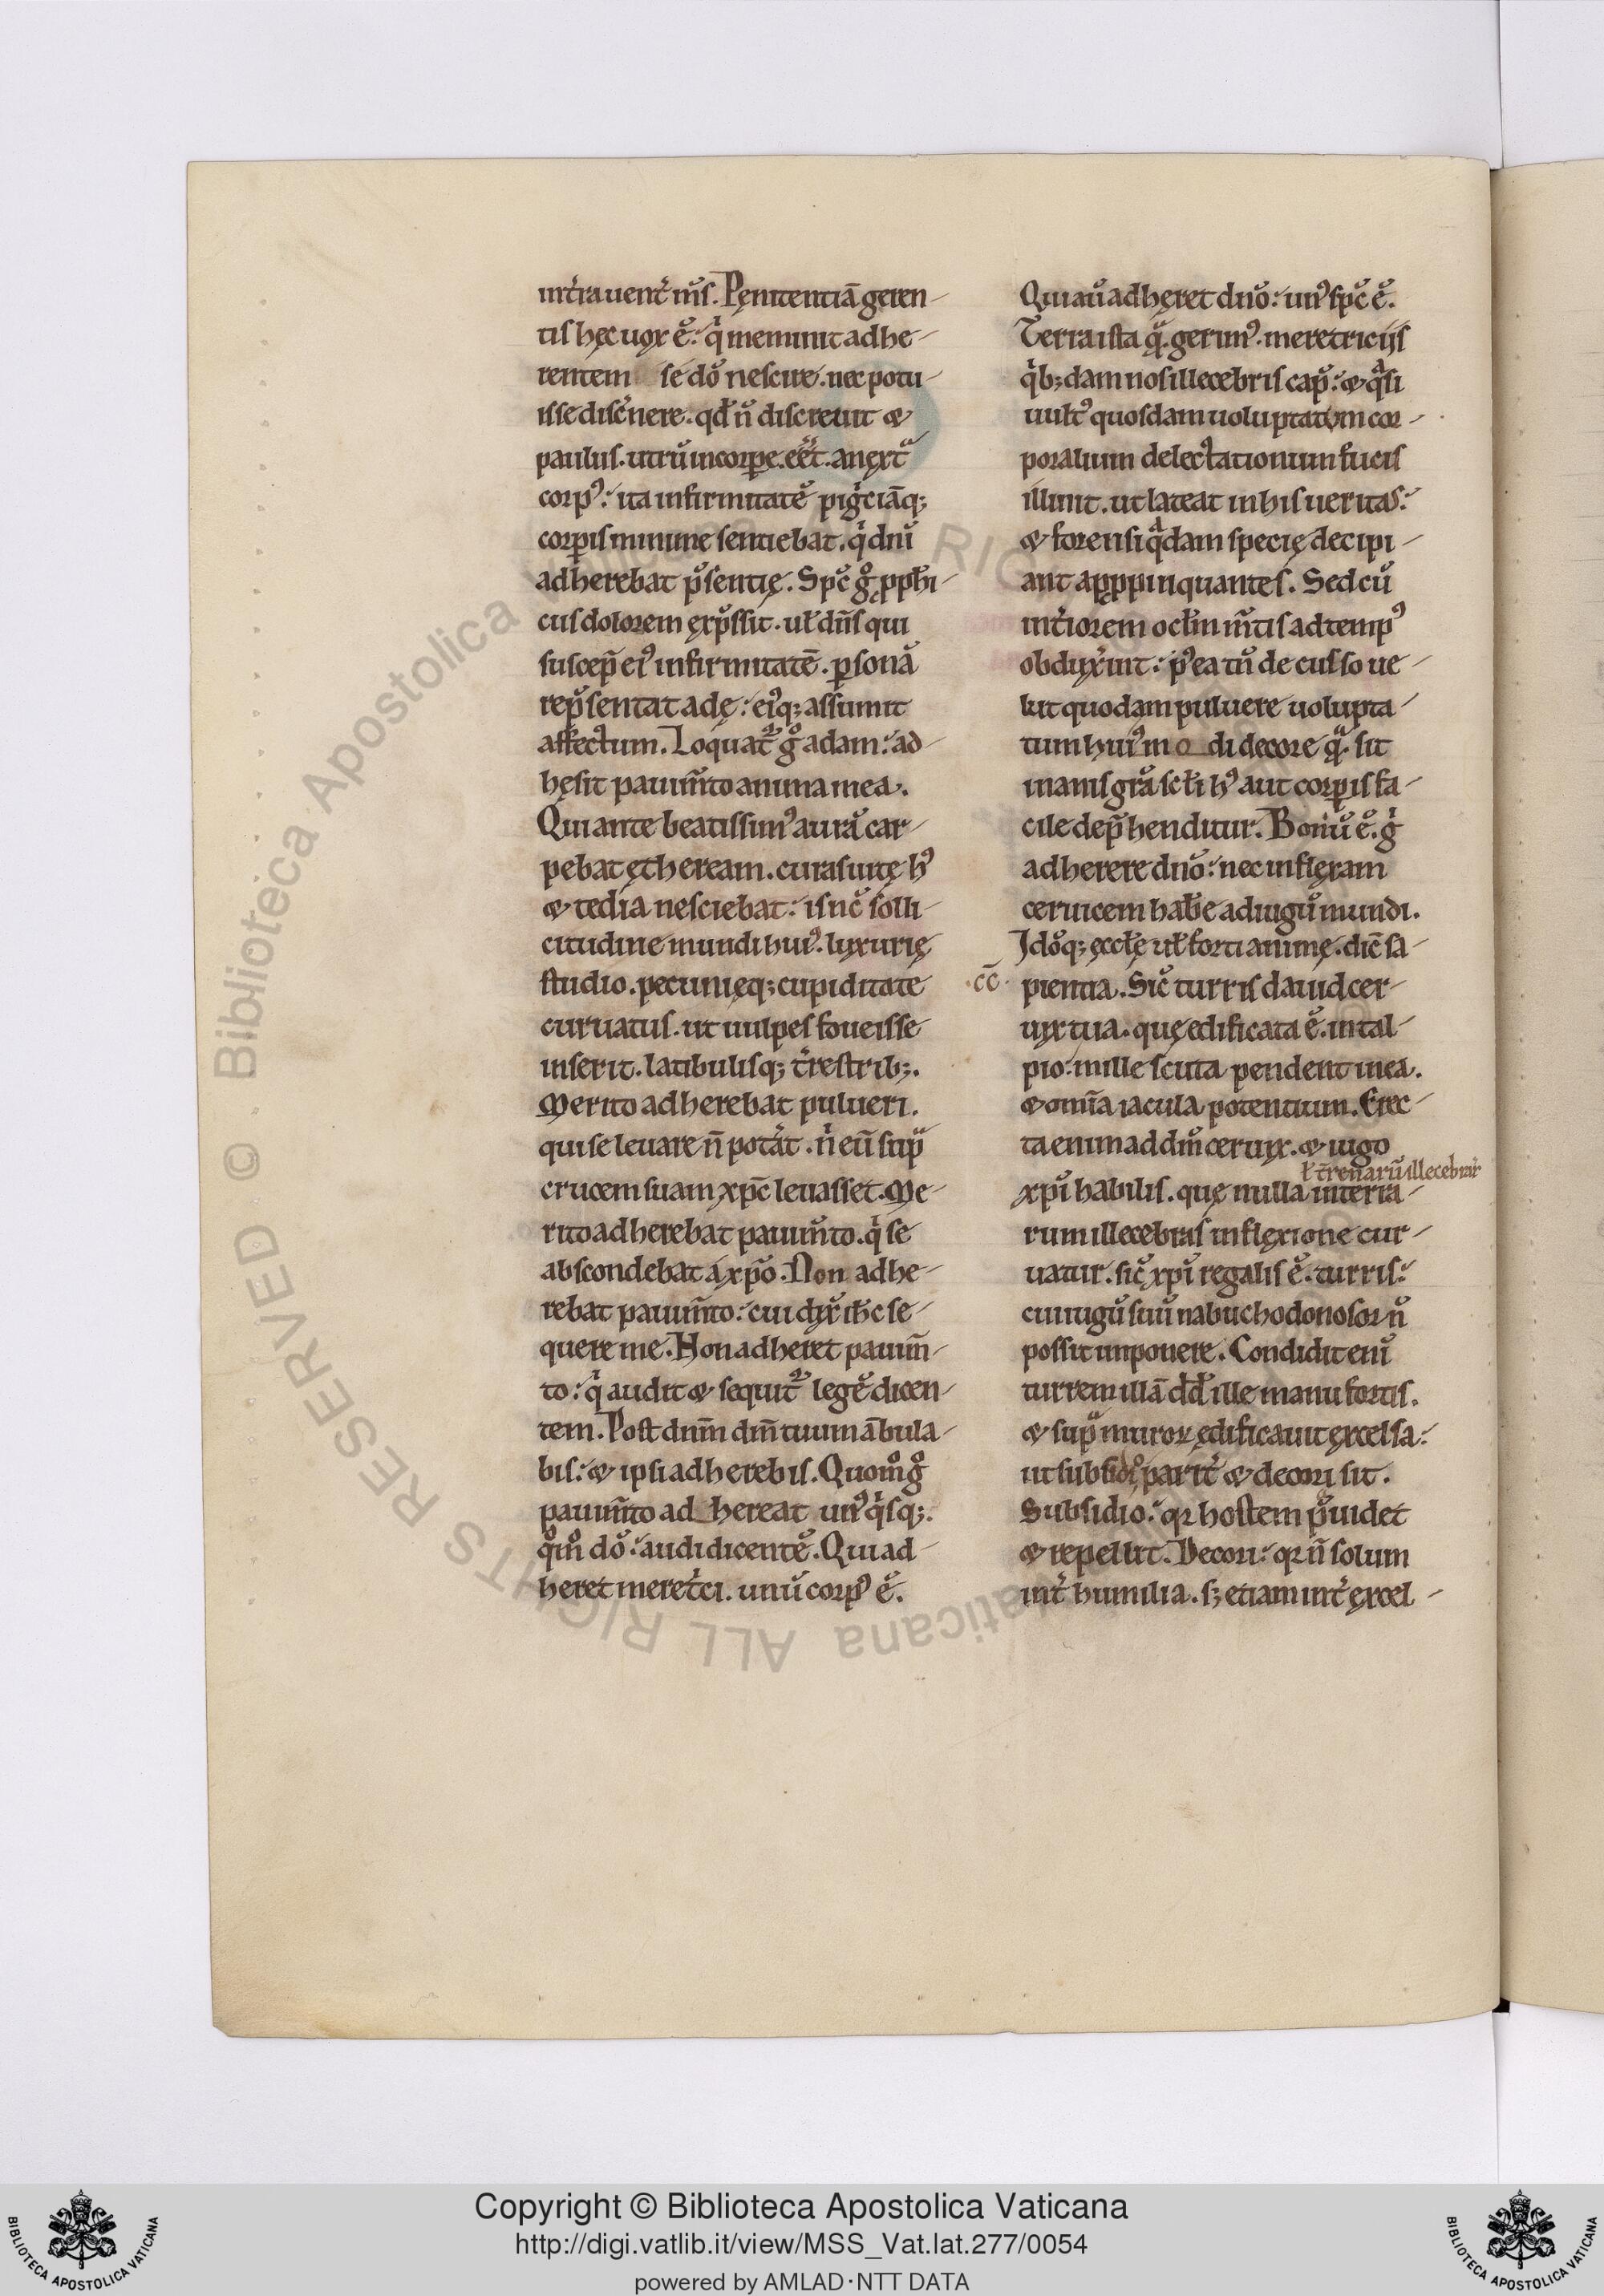 int̾ra uent̾ nr̄s. Pęnitentiā geren-
tis hęc uox ē. qi meminit adhe-
rentem se dō nescire. nec potu-
isse disc̾nere. qd̄ n̄ discreuit &
paulus. utrū in corpe. eēt. an extᵃ
corpꝰ. ita infirmitatē pigͥciāq;
corpis minime sentiebat. qi dn̄i
adherebat p̄sentię. Spc̄ gͦ ppħi-
cus dolorem exp̄ssit. uł dn̄s qui
suscep̄ eiꝰ infirmitatē. psonā
rep̄sentat adę. eiꝰq; assumit
affectum. Loquat᷑ gͦ adam. ad-
hęsit pauim̄to anima mea.
Qui ante beatissimꝰ aurā car-
pebat ętheream. curas uitę hꝰ
& tedia nesciebat. is nc̄ solli-
citudine mundi huiꝰ. luxurię
studio. pecunięq; cupiditate
curuatus. ut uulpes foueis se
inserit. latibulisq; t̾restrib;.
Merito adherebat pulueri.
qui se leuare n̄ potᵃt. ni eū supᵃ
crucem suam xpc̄ leuasset. Me-
rito adherebat pauim̄to. qi se
abscondebat a xpō. Non adhe-
rebat pauim̄to. cui dix̄ ih̄c se-
quere me. Non adheret pauim̄-
to. qi audit & sequit᷑ legē dicen-
tem. Post dn̄m dm̄ tuum ābula-
bis. & ipsi adherebis. Quomͦ gͦ
pauim̄to ad hereat unꝰ qisq;.
qͦmͦ dō. audi dicentē. Qui ad-
heret meretͥci. unū corpꝰ ē.
Qui aū adhęret dn̄o. unꝰ spc̄ ē.
Terra ista qᵃ. gerimꝰ. meretriciis
qib; dam nos illecebris cap̄. & qᵃsi
uultꝰ quosdam uoluptatum cor-
poralium delectationum fucis
illinit. ut lateat in his ueritas.
& forensi qᵃdam specię decipi-
ant appinquantes. Sed cū
int̾iorem ocłm m̄tis ad tempꝰ
obdux̾int. pꝰea tn̄ de cusso ue-
lut quodam puluere uolupta-
tum huiꝰmo di decore qᵃ. sit
inanis gr̄a scłi hꝰ aut corpis fa-
cile dep̄henditur. Bonū ē. gͥ
adherere dn̄o. nec inflęxam
ceruicem hab̄e ad iugū mundi.
Idōq; ęccłę uł forti animę. dic̄ sa-
.cc̄. pientia. Sic̄ turris dauid cer-
uix tua. quę edificata ē. in tal-
pio. mille scuta pendent in ea.
& omīa iacula potentium. Erec-
ta enim ad dm̄ ceruix. & iugo
ł t̾renarū illecebrar᷑
xpī habilis. quę nulla interia-
rum illecebras inflexione cur-
uatur. sic̄ xpī regalis ē. turris.
cui iugū suū nabuchodonosor n̄
possit imponere. Condidit enī
turrem illā dd̄ ille manu fortis.
& supᵃ muroꝝ ędificauit excelsa.
ut subsidio parit̾ & decori sit.
Subsidio. qꝛ hostem p̄uidet
& repellit. Decori. qꝛ n̄ solum
int̾ humilia. s; etiam int̾ excel-
Copyright © Biblioteca Apostolica Vaticana
http://digi.vatlib.it/view/MSS_Vat.lat.277/0054
powered by AMLAD·NTT DATA